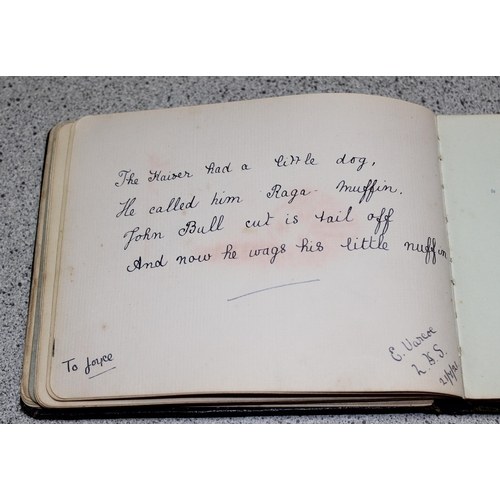 The Kaiser had a little dog,
He called him Raga- muffin.
John Bull cut is tail off
And now he wags his little nuffin
To Joyce
E. Varcoe
L.D.S.